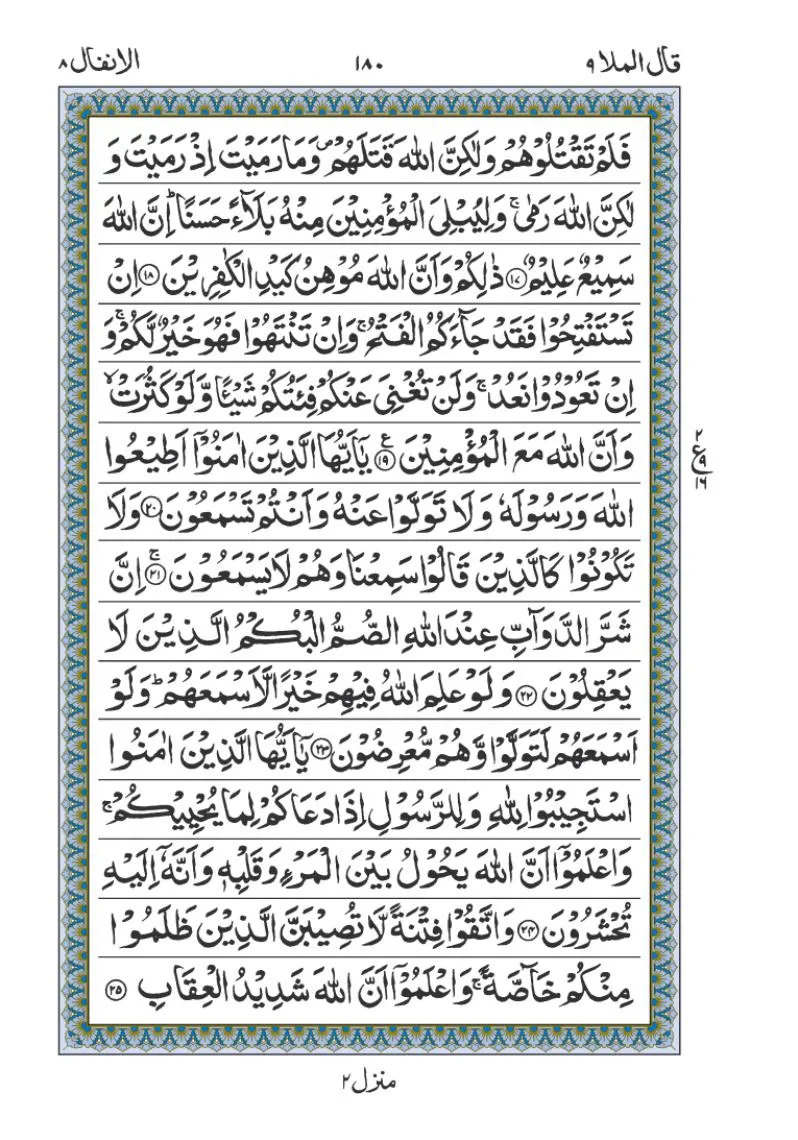 قال الملا ۹
۱۸۰
الانفال ۸
فَلَمْ تَقْتُلُوْهُمْ وَلٰكِنَّ اللّٰهَ قَتَلَهُمْ ۪ وَمَا رَمَيْتَ اِذْ رَمَيْتَ وَ
لٰكِنَّ اللّٰهَ رَمٰى ۚ وَلِيُبْلِيَ الْمُؤْمِنِيْنَ مِنْهُ بَلَآءً حَسَنًا ؕ اِنَّ اللّٰهَ
سَمِيْعٌ عَلِيْمٌ ﴿۱۷﴾ ذٰلِكُمْ وَاَنَّ اللّٰهَ مُوْهِنُ كَيْدِ الْكٰفِرِيْنَ ﴿۱۸﴾ اِنْ
تَسْتَفْتِحُوْا فَقَدْ جَآءَكُمُ الْفَتْحُ ۚ وَاِنْ تَنْتَهُوْا فَهُوَ خَيْرٌ لَّكُمْ ۚ وَ
اِنْ تَعُوْدُوْا نَعُدْ ۚ وَلَنْ تُغْنِيَ عَنْكُمْ فِئَتُكُمْ شَيْـًٔا وَّلَوْ كَثُرَتْ ۙ
وَاَنَّ اللّٰهَ مَعَ الْمُؤْمِنِيْنَ ﴿۱۹﴾ ع يٰۤاَيُّهَا الَّذِيْنَ اٰمَنُوْۤا اَطِيْعُوا
۲
ع
۹
۱۶
اللّٰهَ وَرَسُوْلَهٗ وَلَا تَوَلَّوْا عَنْهُ وَاَنْتُمْ تَسْمَعُوْنَ ﴿۲۰﴾ وَلَا
تَكُوْنُوْا كَالَّذِيْنَ قَالُوْا سَمِعْنَا وَهُمْ لَا يَسْمَعُوْنَ ﴿۲۱﴾ ۚ اِنَّ
شَرَّ الدَّوَآبِّ عِنْدَ اللّٰهِ الصُّمُّ الْبُكْمُ الَّذِيْنَ لَا
يَعْقِلُوْنَ ﴿۲۲﴾ وَلَوْ عَلِمَ اللّٰهُ فِيْهِمْ خَيْرًا لَّاَسْمَعَهُمْ ؕ وَلَوْ
اَسْمَعَهُمْ لَتَوَلَّوْا وَّهُمْ مُّعْرِضُوْنَ ﴿۲۳﴾ يٰۤاَيُّهَا الَّذِيْنَ اٰمَنُوا
اسْتَجِيْبُوْا لِلّٰهِ وَلِلرَّسُوْلِ اِذَا دَعَاكُمْ لِمَا يُحْيِيْكُمْ ۚ
وَاعْلَمُوْۤا اَنَّ اللّٰهَ يَحُوْلُ بَيْنَ الْمَرْءِ وَقَلْبِهٖ وَاَنَّهٗۤ اِلَيْهِ
تُحْشَرُوْنَ ﴿۲۴﴾ وَاتَّقُوْا فِتْنَةً لَّا تُصِيْبَنَّ الَّذِيْنَ ظَلَمُوْا
مِنْكُمْ خَآصَّةً ۚ وَاعْلَمُوْۤا اَنَّ اللّٰهَ شَدِيْدُ الْعِقَابِ ﴿۲۵﴾
منزل ۲